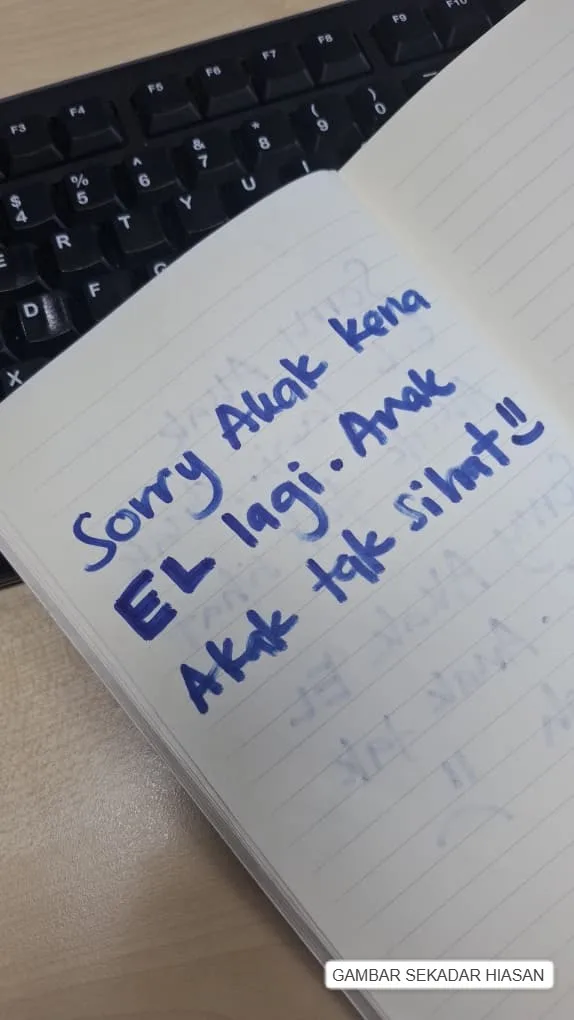 F3 F4 F5 F6 F7 F8 F9 F10
$ 4 % 5 ^ 6 & 7 * 8 ( 9 ) 0
E R T Y U I
D F G
X
Sorry Akak kena
EL lagi. Anak
Akak tak sihat!!
GAMBAR SEKADAR HIASAN